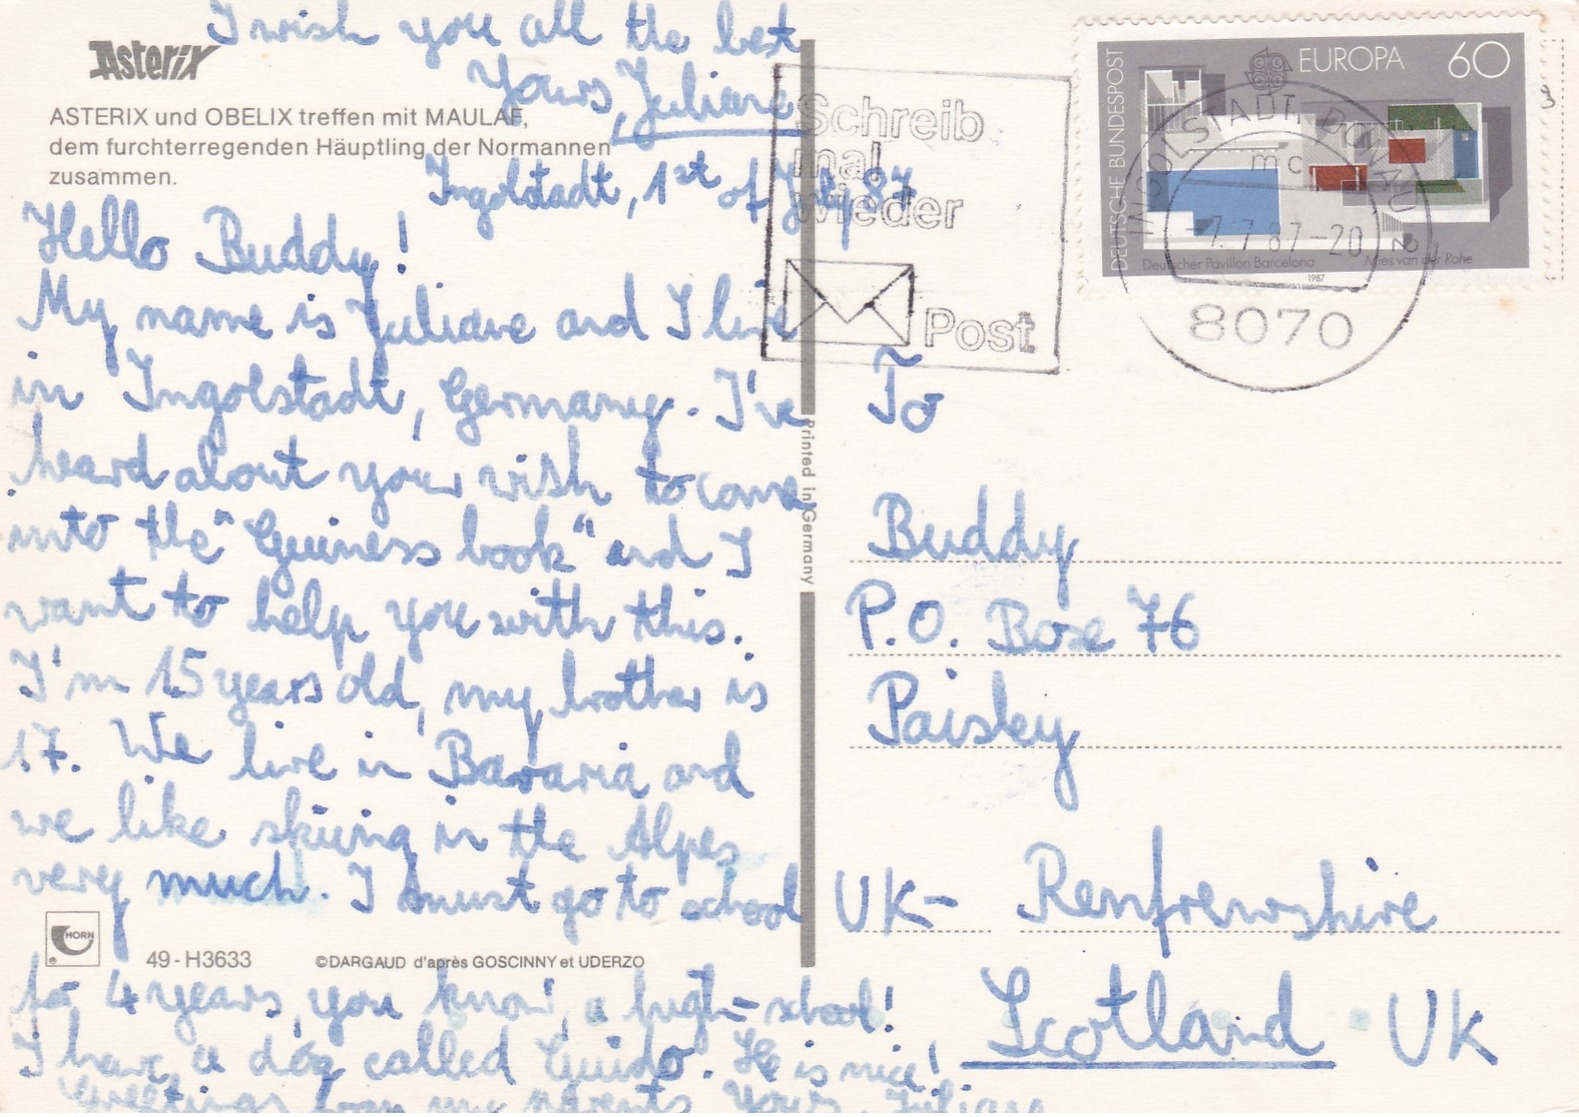 I wish you all the best
Yours, Juliane
Asterix
ASTERIX und OBELIX treffen mit MAULAF,
dem furchterregenden Häuptling der Normannen
zusammen.
Ingolstadt, 1st of July 87
Hello Buddy!
My name is Juliane and I live
in Ingolstadt, Germany. I've
heard about your wish to come
into the "Guiness book" and I
want to help you with this.
I'm 15 years old, my brother is
17. We live in Bavaria and
we like skiing in the Alpes
very much. I must go to school
HORN
49-H3633
©DARGAUD d'après GOSCINNY et UDERZO
for 4 years, you know, a high-school!
I have a dog called Guido. He is nice!
Greetings from my parents Yours, Juliane
Printed in Germany
Schreib
mal
wieder
Post
DEUTSCHE BUNDESPOST
EUROPA 60
Deutscher Pavillon Barcelona
Mies van der Rohe
1987
INGOLSTADT, DONAU
mc
-7.7.87-20
8070
To
Buddy
P.O. Boxe 76
Paisley
UK- Renfrewshire
Scotland UK